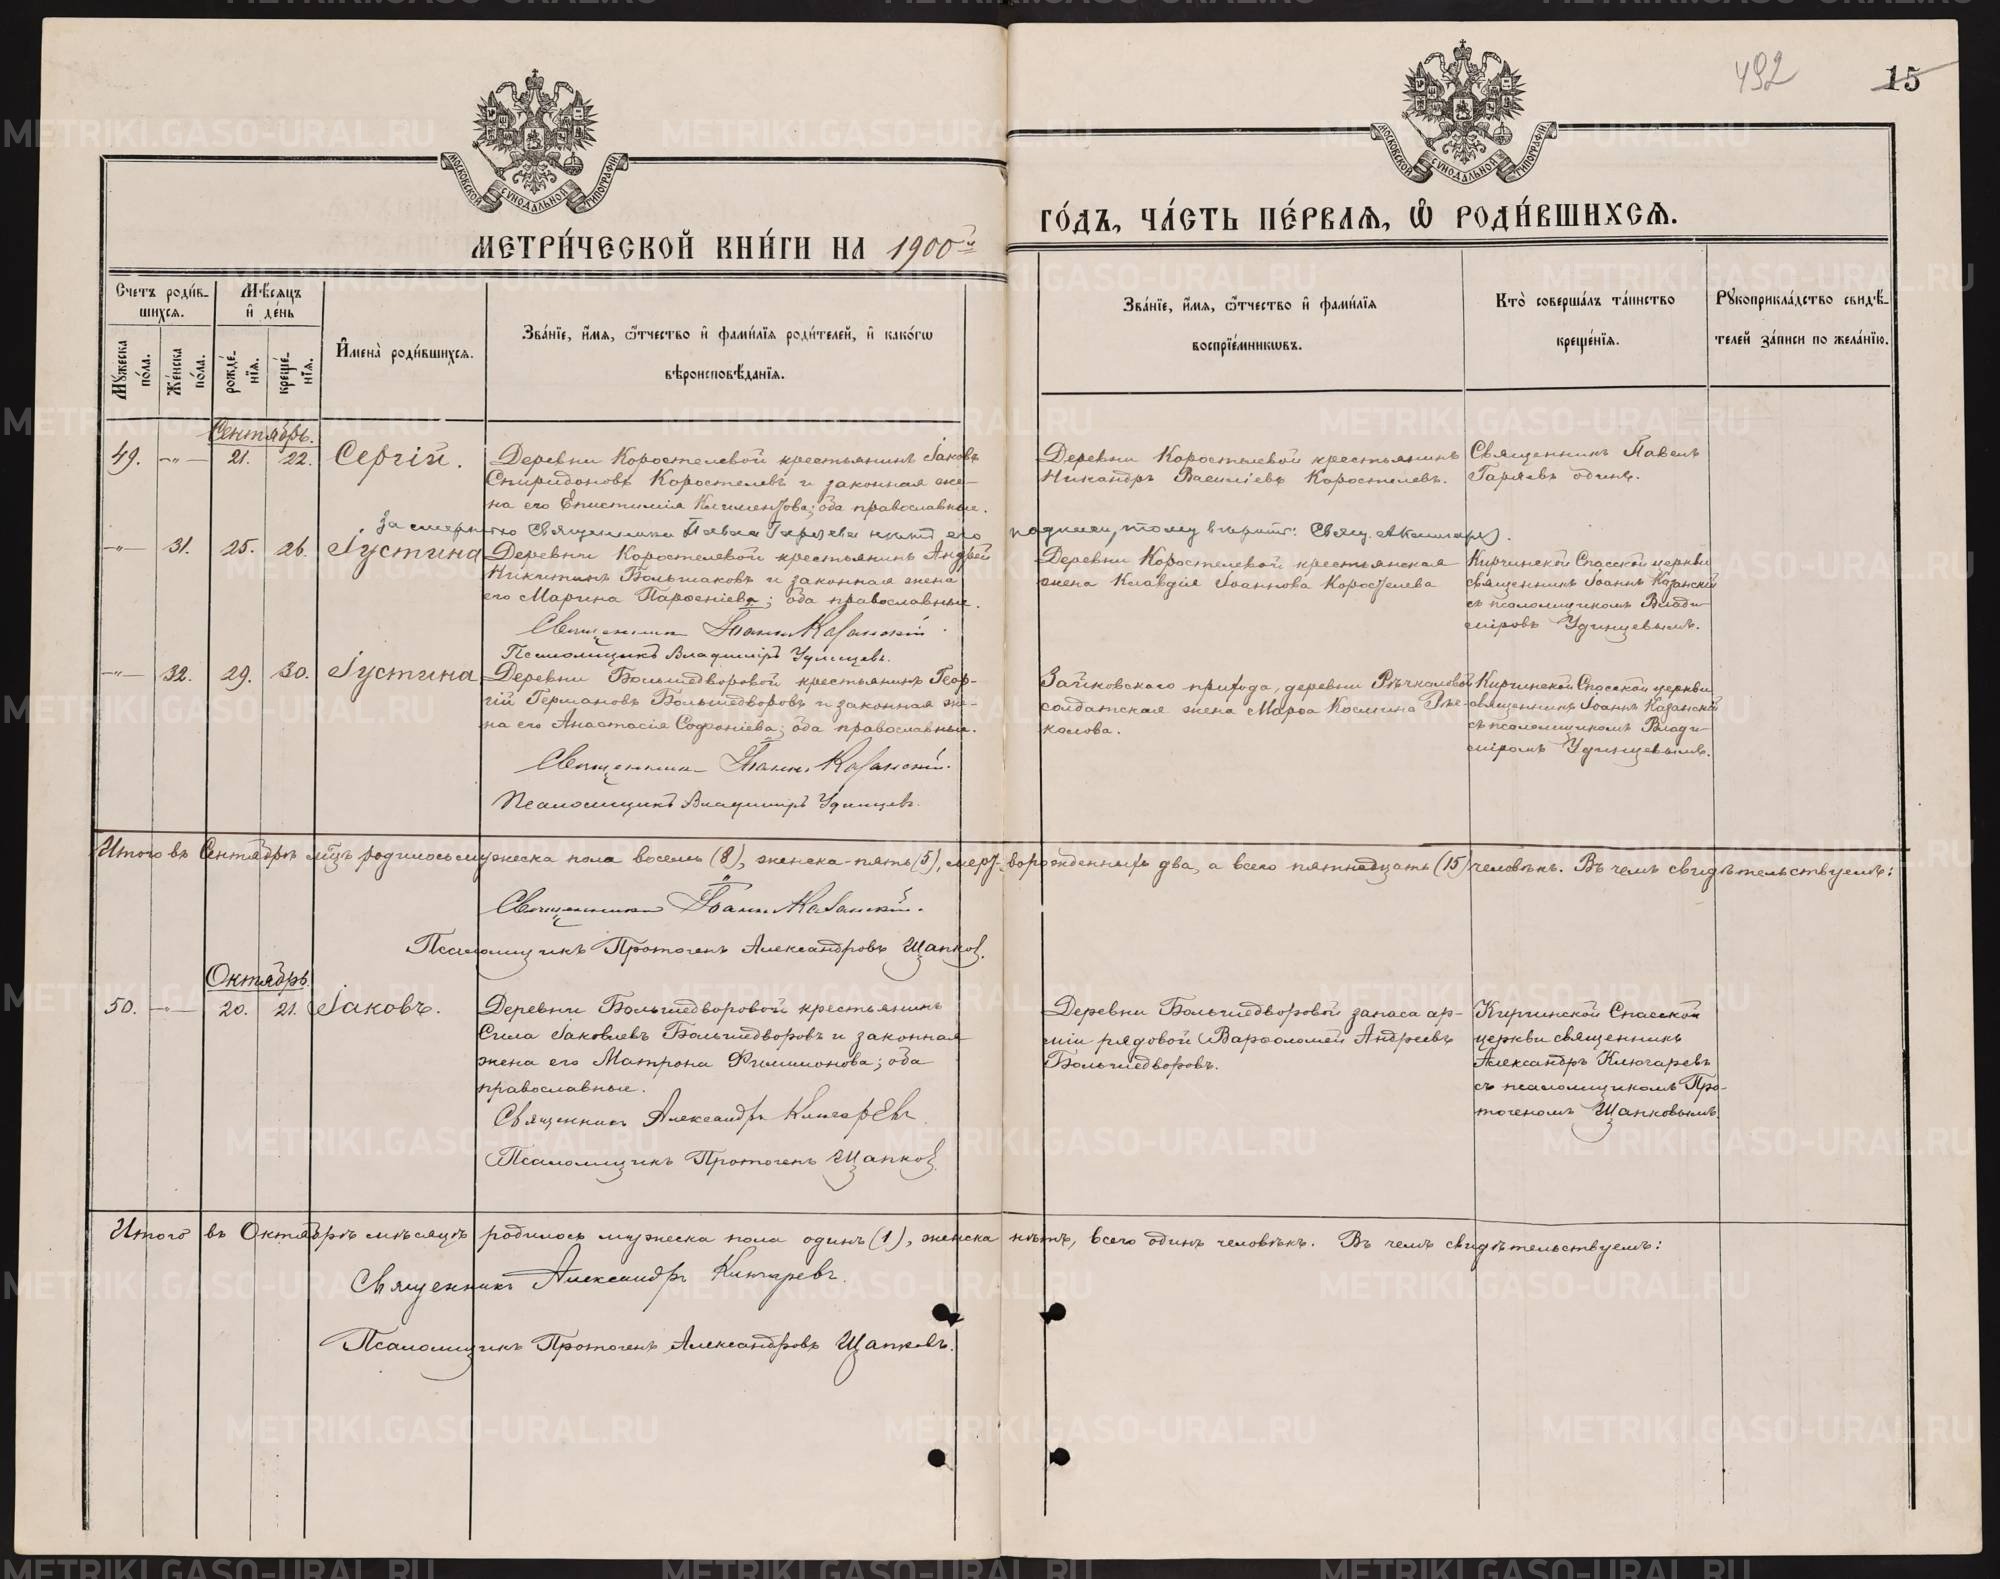 492
15
МОСКОВСКОЙ СѴНОДАЛЬНОЙ ТИПОГРАФІИ
МОСКОВСКОЙ СѴНОДАЛЬНОЙ ТИПОГРАФІИ
МЕТРИ́ЧЕСКОЙ КНИ́ГИ НА 1900й
ГО́ДЪ, ЧА́СТЬ ПЕ́РВАѦ, Ѡ҆ РОДИ́ВШИХСѦ.
Счетъ роди́в-
шихсѧ.
Мѣ́сѧцъ
и҆ де́нь
Мꙋ́жеска по́ла.
Же́нска по́ла.
рожде́-
нїѧ.
креще́-
нїѧ.
И҆мена̀ роди́вшихсѧ.
Зва́нїе, и҆́мѧ, ѻ҆́тчество и҆ фами́лїѧ роди́телей, и҆ како́гѡ
вѣроисповѣ́данїѧ.
Зва́нїе, и҆́мѧ, ѻ҆́тчество и҆ фами́лїѧ
воспрїе́мникѡвъ.
Кто̀ соверша́лъ та́инство
креще́нїѧ.
Рꙋкоприкла́дство свидѣ́-
телей за́писи по жела́нїю.
Сентябрь.
49. —„— 21. 22. Сергій.
Деревни Коростелевой крестьянинъ Іаковъ
Спиридоновъ Коростелевъ и законная же-
на его Епистимія Климентова; оба православные.
Деревни Коростелевой крестьянинъ
Никандръ Василіевъ Коростелевъ.
Священникъ Павелъ
Гаряевъ одинъ.
За смертію Священника Павла Гаряева нѣтъ его подписи, тому вѣрить: Свящ.
—„— 31. 25. 26. Іустина
Деревни Коростелевой крестьянинъ Андрей
Никитинъ Большаковъ и законная жена
его Марина Парѳеніева; оба православные.
Священникъ Іоаннъ Казанскій.
Псаломщикъ Владиміръ Удинцевъ.
Деревни Коростелевой крестьянская
жена Клавдія Іоаннова Коростелева
Киргинской Спасской церкви
священникъ Іоаннъ Казанскій
съ псаломщикомъ Влади-
міровъ Удинцевымъ.
—„— 32. 29. 30. Іустина
Деревни Большедворовой крестьянинъ Геор-
гій Германовъ Большедворовъ и законная же-
на его Анастасія Софоніева; оба православные.
Священникъ Іоаннъ Казанскій.
Псаломщикъ Владиміръ Удинцевъ.
Зайковскаго прихода, деревни Рѣчкаловой
солдатская жена Марѳа Космина Рѣч-
калова.
Киргинской Спасской церкви
священникъ Іоаннъ Казанскій
съ псаломщикомъ Влади-
міромъ Удинцевымъ.
Итого въ Сентябрѣ мцѣ родилось мужеска пола восемь (8), женска-пять (5), мертворожденныхъ два, а всего пятнадцать (15) человѣкъ. Въ чемъ свидѣтельствуемъ:
Священникъ Іоаннъ Казанскій.
Псаломщикъ Протогенъ Александровъ Щапковъ.
Октябрь
50. —„— 20. 21. Іаковъ.
Деревни Большедворовой крестьянинъ
Сила Іаковлевъ Большедворовъ и законная
жена его Матрона Филимонова; оба
православные.
Священникъ Александръ Ключаревъ
Псаломщикъ Протогенъ Щапковъ
Деревни Большедворовой запаса ар-
міи рядовой Варѳоломей Андреевъ
Большедворовъ.
Киргинской Спасской
церкви священникъ
Александръ Ключаревъ
съ псаломщикомъ Про-
тогеномъ Щапковымъ.
Итого въ Октябрѣ мѣсяцѣ родилось мужеска пола одинъ (1), женска нѣтъ, всего одинъ человѣкъ. Въ чемъ свидѣтельствуемъ:
Священникъ Александръ Ключаревъ.
Псаломщикъ Протогенъ Александровъ Щапковъ.
METRIKI.GASO-URAL.RU